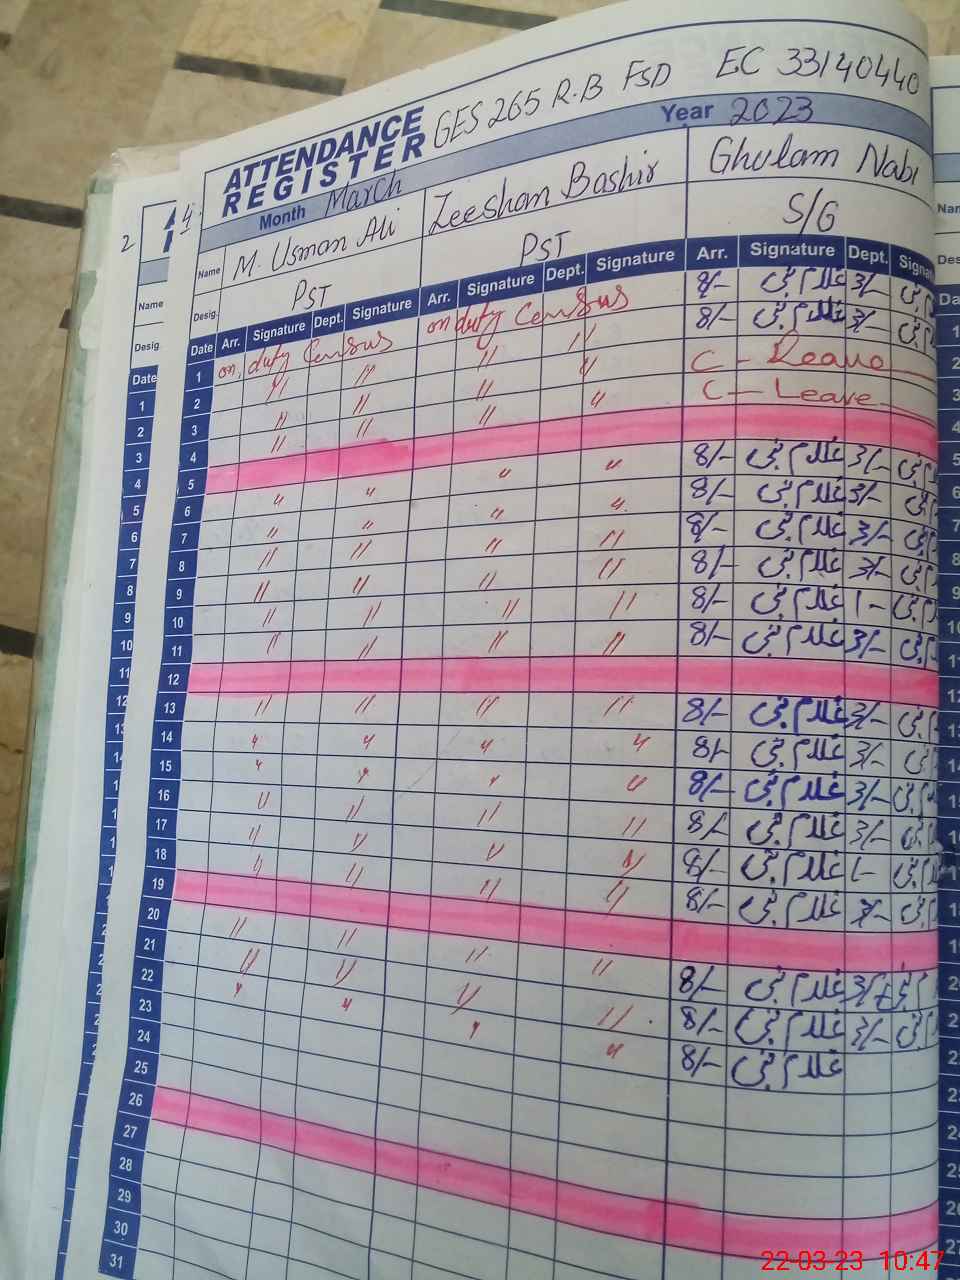 GES 265 R.B FSD EC 33140440
ATTENDANCE
REGISTER
Month March Year 2023
Name M. Usman Ali Zeeshan Bashir Ghulam Nabi
Desig. PST PST S/G
Date Arr. Signature Dept. Signature Arr. Signature Dept. Signature Arr. Signature Dept.
1 on duty Census on duty Census 8/- غلام نبی 3/-
2 〃 〃 〃 〃 8/- غلام نبی 3/-
3 〃 〃 〃 〃 C - Leave
4 〃 〃 〃 〃 C - Leave
5
6 〃 〃 〃 〃 8/- غلام نبی 3/-
7 〃 〃 〃 〃 8/- غلام نبی 3/-
8 〃 〃 〃 〃 8/- غلام نبی 3/-
9 〃 〃 〃 〃 8/- غلام نبی 3/-
10 〃 〃 〃 〃 8/- غلام نبی 1-
11 〃 〃 〃 〃 8/- غلام نبی 3/-
12
13 〃 〃 〃 〃 8/- غلام نبی 3/-
14 〃 〃 〃 〃 8/- غلام نبی 3/-
15 〃 〃 〃 〃 8/- غلام نبی 3/-
16 〃 〃 〃 〃 8/- غلام نبی 3/-
17 〃 〃 〃 〃 8/- غلام نبی 1-
18 〃 〃 〃 〃 8/- غلام نبی 3/-
19
20 〃 〃 〃 〃 8/- غلام نبی 3/-
21 〃 〃 〃 〃 8/- غلام نبی 3/-
22 〃 〃 〃 〃 8/- غلام نبی
23
24
25
26
27
28
29
30
31
22-03-23 10:47